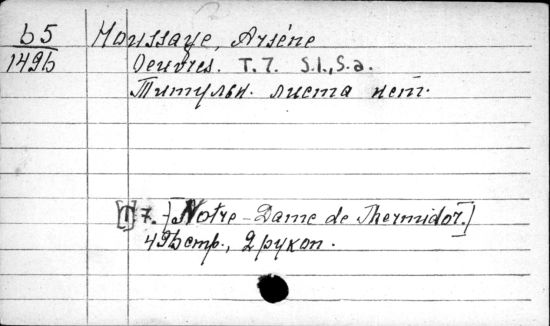 b5 Houssaye, Arsène
149b Oeuvres. T. 7. S.l., S.a.
Титульн. листа нет.
[T] 7. [Notre-Dame de Thermidor.]
495 стр., 2 рукоп.